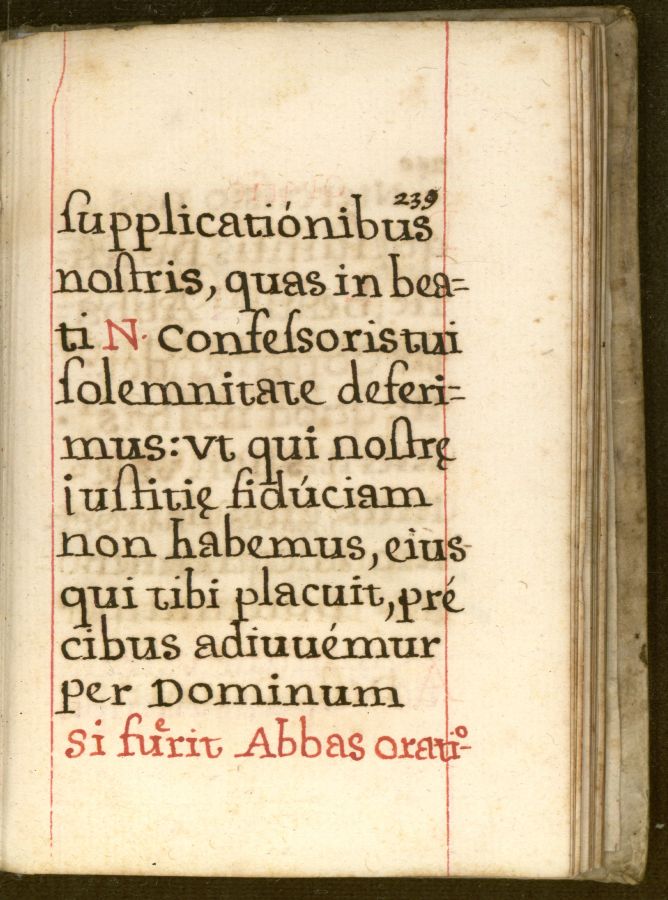 239
ſupplicatiónibus
noſtris, quas in bea=
ti N. Confeſsoris tui
ſolemnitate deferi=
mus: vt qui noſtrę
iuſtitię fidúciam
non habemus, eius
qui tibi placuit, pré
cibus adiuuémur
per Dominum
si fuerit Abbas oratiº-